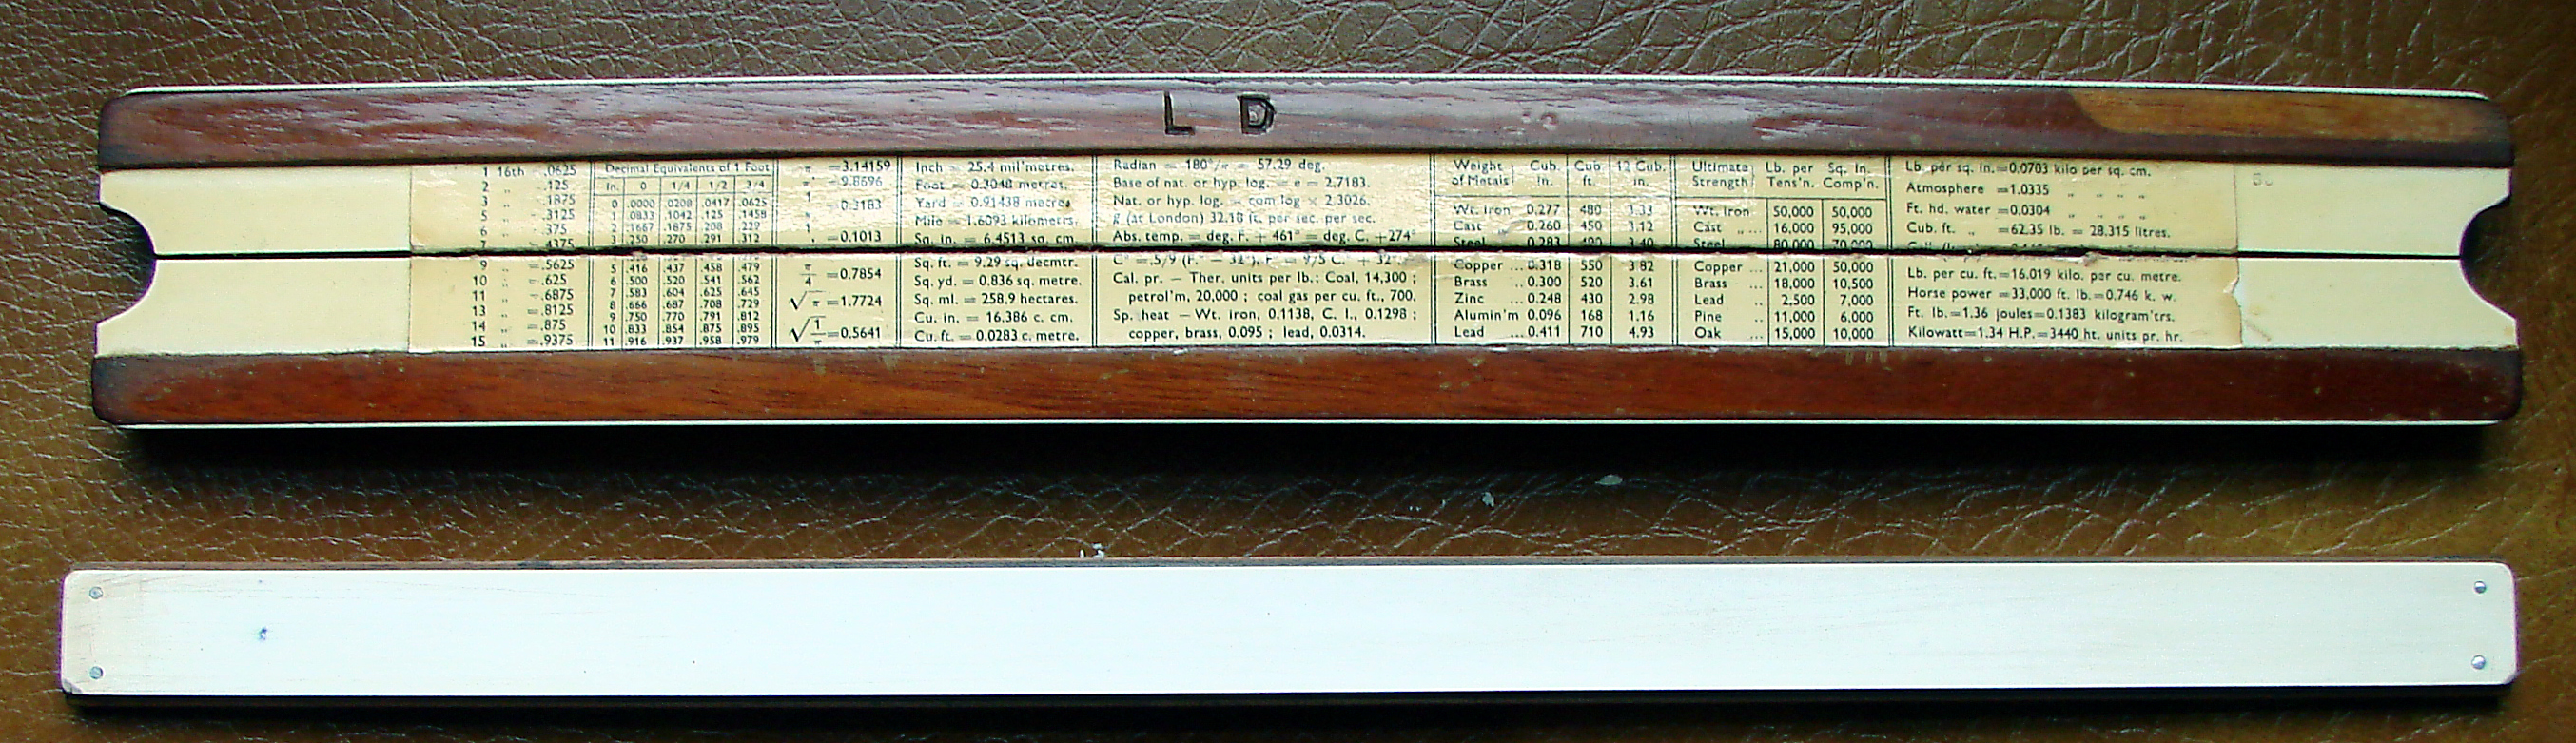 L D
1 16th .0625
2 „ .125
3 „ .1875
5 „ .3125
6 „ .375
7 .4375
9 „ .5625
10 „ .625
11 „ .6875
13 „ .8125
14 „ .875
15 „ .9375
Decimal Equivalents of 1 Foot
In. 0 1/4 1/2 3/4
0 .0000 .0208 .0417 .0625
1 .0833 .1042 .125 .1458
2 .1667 .1875 .208 .229
3 .250 .270 .291 .312
5 .416 .437 .458 .479
6 .500 .520 .541 .562
7 .583 .604 .625 .645
8 .666 .687 .708 .729
9 .750 .770 .791 .812
10 .833 .854 .875 .895
11 .916 .937 .958 .979
π =3.14159
=9.8696
=0.3183
=0.1013
π/4 =0.7854
√π =1.7724
√1/π =0.5641
Inch = 25.4 mil'metres.
Foot = 0.3048 metres.
Yard = 0.91438 metres
Mile = 1.6093 kilometrs.
Sq. in. = 6.4513 sq. cm.
Sq. ft. = 9.29 sq. decmtr.
Sq. yd. = 0.836 sq. metre.
Sq. ml. = 258.9 hectares.
Cu. in. = 16.386 c. cm.
Cu. ft. = 0.0283 c. metre.
Radian = 180°/π = 57.29 deg.
Base of nat. or hyp. log. = e = 2.7183.
Nat. or hyp. log. = com log × 2.3026.
g (at London) 32.18 ft. per sec. per sec.
Abs. temp. = deg. F. + 461° = deg. C. +274°
C° = 5/9 (F.° − 32°), F° = 9/5 C.° + 32°
Cal. pr. — Ther. units per lb.: Coal, 14,300 ;
petrol'm, 20,000 ; coal gas per cu. ft., 700.
Sp. heat — Wt. iron, 0.1138, C. I., 0.1298 ;
copper, brass, 0.095 ; lead, 0.0314.
Weight of Metals Cub. in. Cub. ft. 12 Cub. in.
Wt. Iron 0.277 480 3.33
Cast „ 0.260 450 3.12
Steel 0.283 490 3.40
Copper ... 0.318 550 3.82
Brass ... 0.300 520 3.61
Zinc ... 0.248 430 2.98
Alumin'm 0.096 168 1.16
Lead ... 0.411 710 4.93
Ultimate Strength Lb. per Sq. In.
Tens'n. Comp'n.
Wt. Iron 50,000 50,000
Cast „ ... 16,000 95,000
Steel 80,000 70,000
Copper ... 21,000 50,000
Brass ... 18,000 10,500
Lead .. 2,500 7,000
Pine .. 11,000 6,000
Oak ... 15,000 10,000
Lb. per sq. in.=0.0703 kilo per sq. cm.
Atmosphere =1.0335 „ „ „ „
Ft. hd. water =0.0304 „ „ „ „
Cub. ft. „ =62.35 lb. = 28.315 litres.
Lb. per cu. ft.=16.019 kilo. per cu. metre.
Horse power =33,000 ft. lb.=0.746 k. w.
Ft. lb.=1.36 joules=0.1383 kilogram'trs.
Kilowatt=1.34 H.P.=3440 ht. units pr. hr.